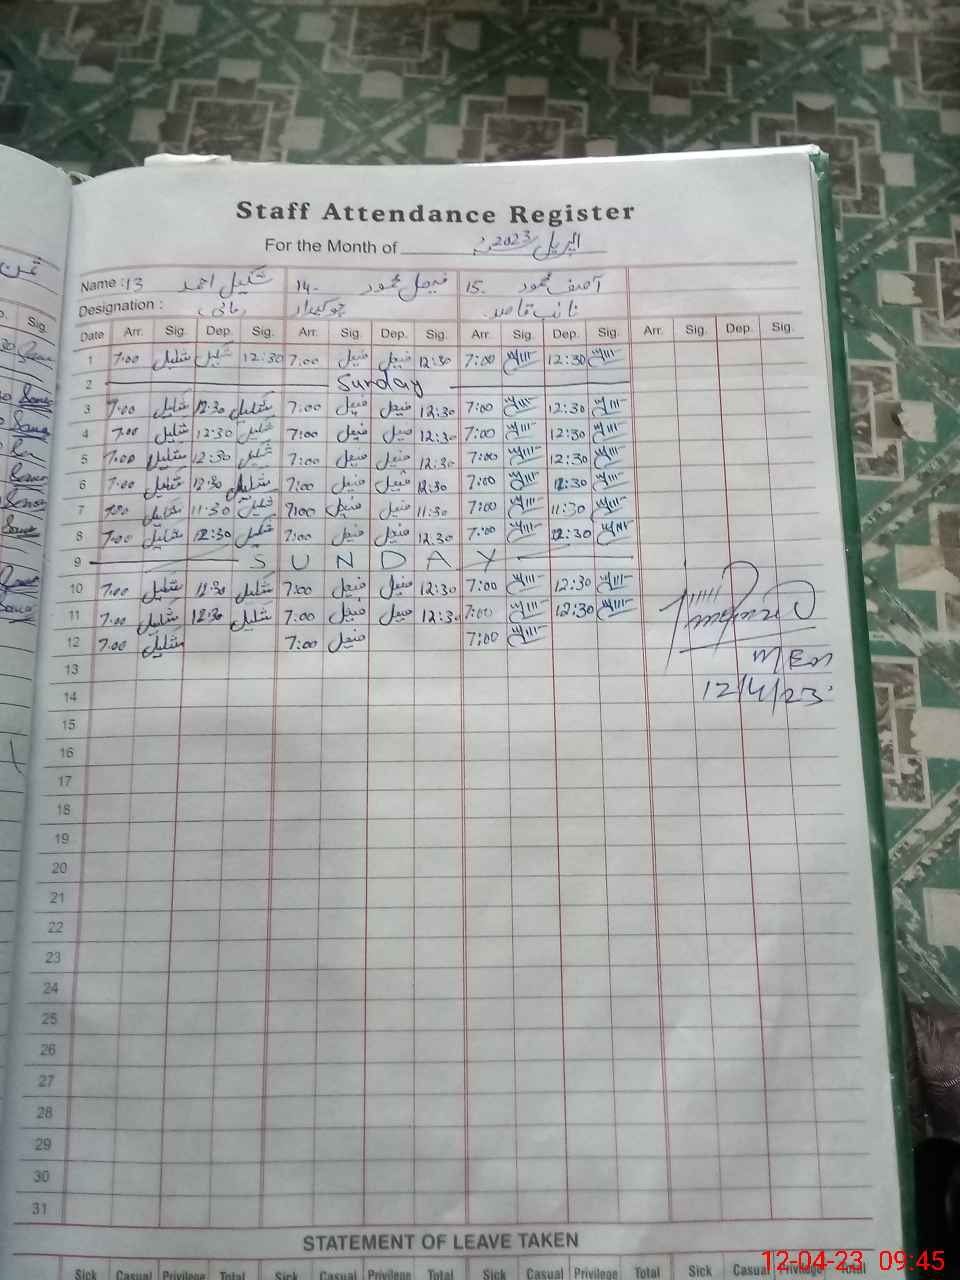 Staff Attendance Register
For the Month of اپریل 2023ء
Name : 13 شکیل احمد 14. فیصل محمود 15. آصف محمود
Designation : مالی چوکیدار نائب قاصد
Date Arr. Sig. Dep. Sig. Arr. Sig. Dep. Sig. Arr. Sig. Dep. Sig. Arr. Sig. Dep. Sig.
1 7:00 شکیل شکیل 12:30 7:00 فیصل فیصل 12:30 7:00 12:30
2 Sunday
3 7:00 شکیل 12:30 شکیل 7:00 فیصل فیصل 12:30 7:00 12:30
4 7:00 شکیل 12:30 شکیل 7:00 فیصل فیصل 12:30 7:00 12:30
5 7:00 شکیل 12:30 شکیل 7:00 فیصل فیصل 12:30 7:00 12:30
6 7:00 شکیل 12:30 شکیل 7:00 فیصل فیصل 12:30 7:00 12:30
7 7:00 شکیل 11:30 شکیل 7:00 فیصل فیصل 11:30 7:00 11:30
8 7:00 شکیل 12:30 شکیل 7:00 فیصل فیصل 12:30 7:00 12:30
9 SUNDAY
10 7:00 شکیل 12:30 شکیل 7:00 فیصل فیصل 12:30 7:00 12:30
11 7:00 شکیل 12:30 شکیل 7:00 فیصل فیصل 12:30 7:00 12:30
12 7:00 شکیل 7:00 فیصل 7:00
MEA
12/4/23
13
14
15
16
17
18
19
20
21
22
23
24
25
26
27
28
29
30
31
STATEMENT OF LEAVE TAKEN
Sick Casual Privilege Total Sick Casual Privilege Total Sick Casual Privilege Total Sick Casual Privilege Total
12-04-23 09:45